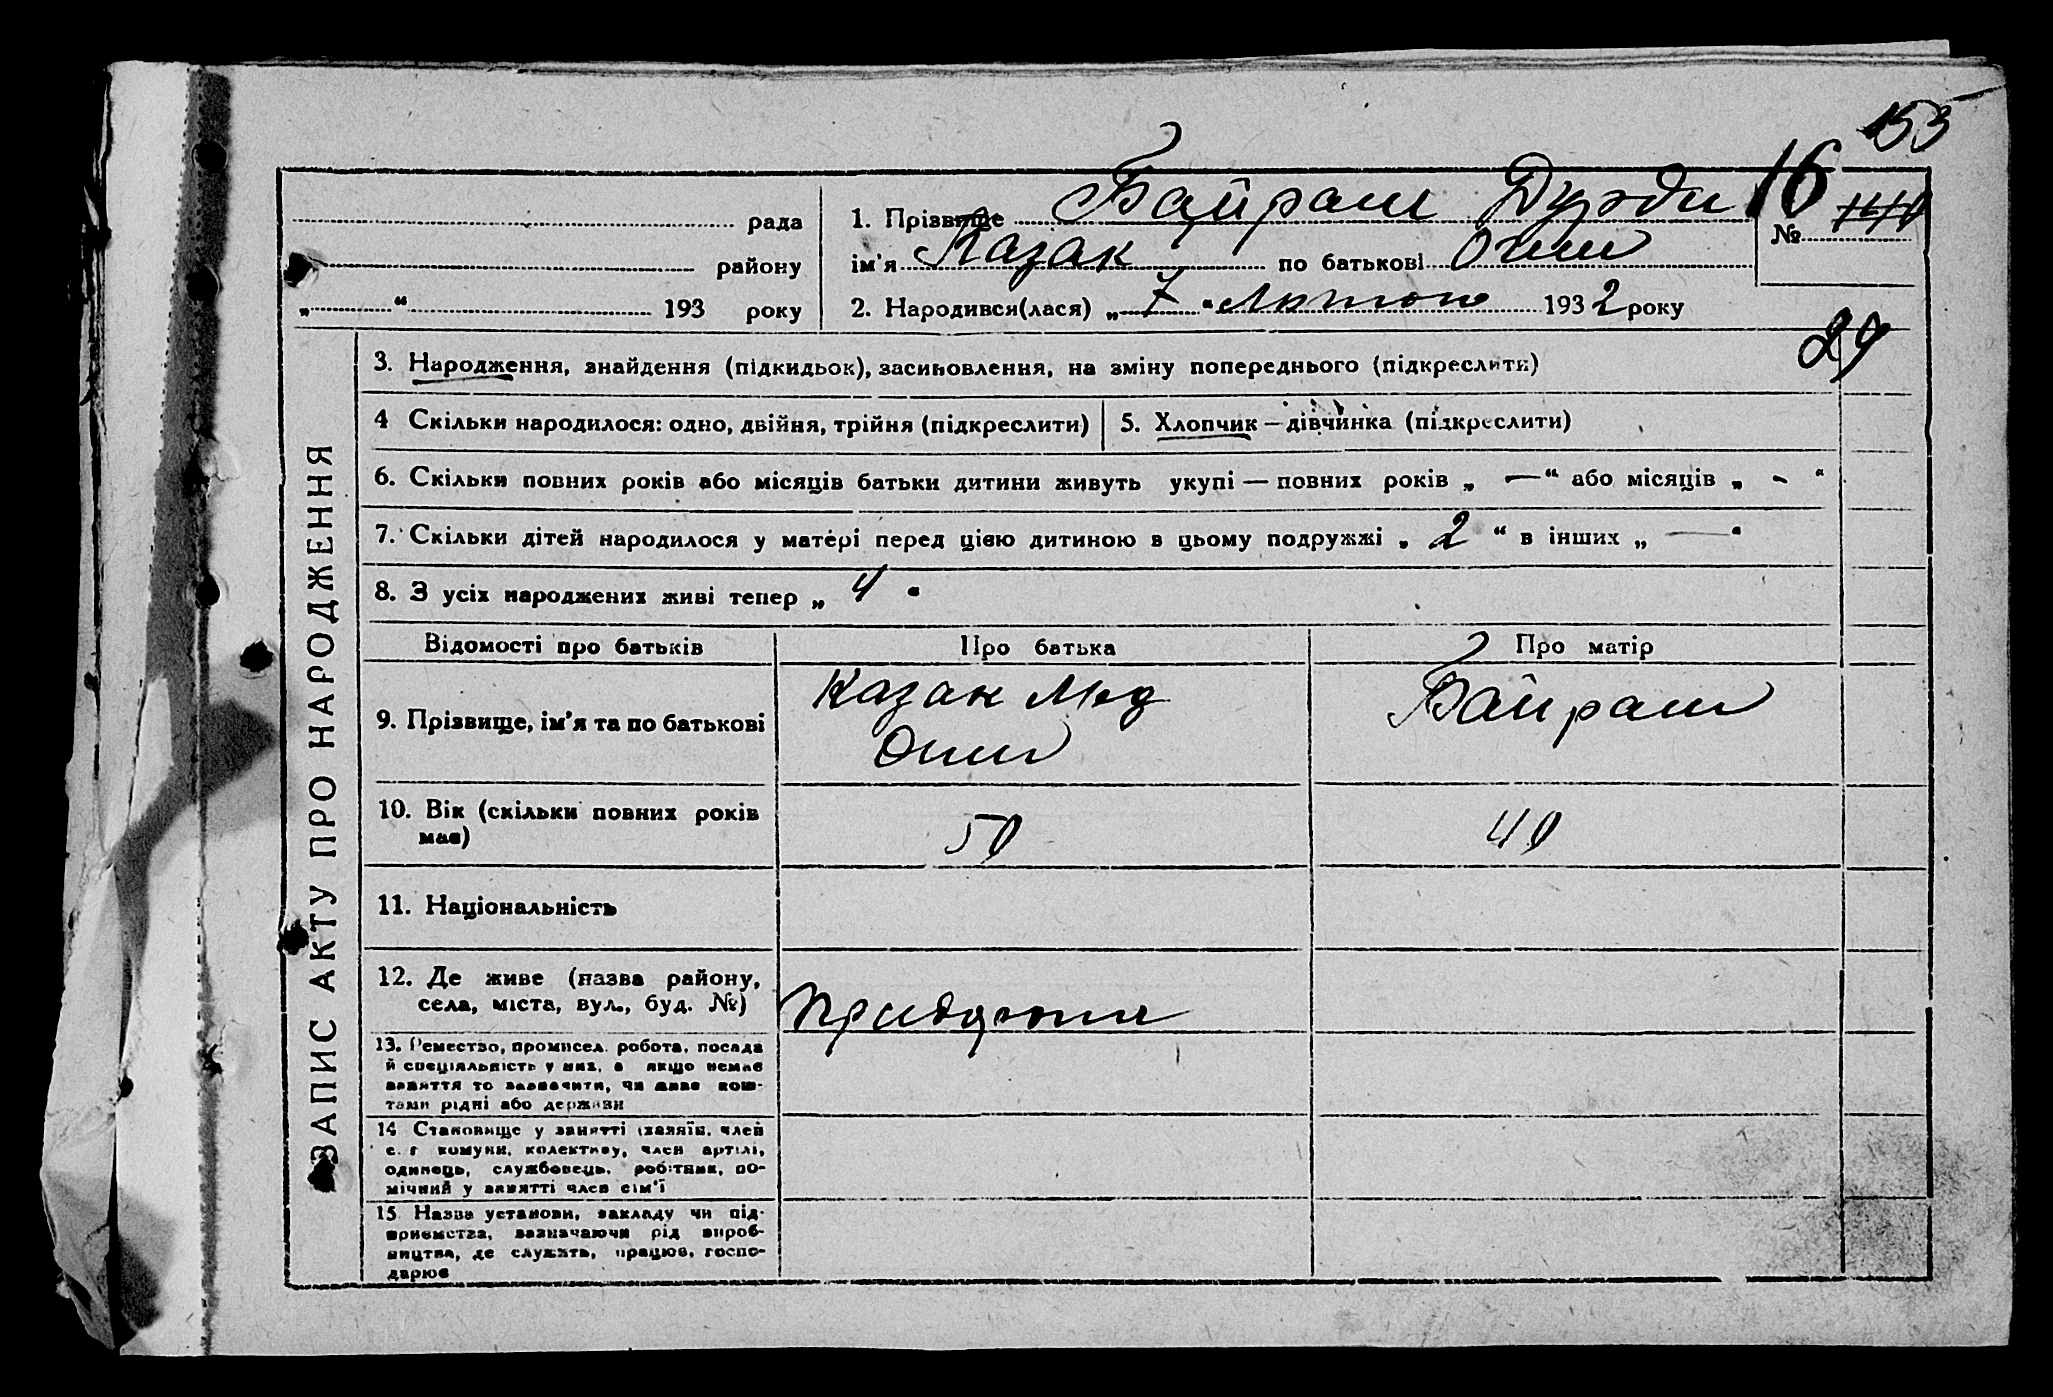 153
рада
району
„ “ 193 року
1. Прізвище Байрам Дурди
ім'я Казак по батькові Огли
2. Народився(лася) „ 7 “ Лютого 1932 року
16
№
29
ЗАПИС АКТУ ПРО НАРОДЖЕННЯ
3. Народження, знайдення (підкидьок), засиновлення, на зміну попереднього (підкреслити)
4 Скільки народилося: одно, двійня, трійня (підкреслити)
5. Хлопчик — дівчинка (підкреслити)
6. Скільки повних років або місяців батьки дитини живуть укупі — повних років „ — “ або місяців „ - “
7. Скільки дітей народилося у матері перед цією дитиною в цьому подружжі „ 2 “ в інших „ — “
8. З усіх народжених живі тепер „ 4 “
Відомості про батьків Про батька Про матір
9. Прізвище, ім'я та по батькові
Казак
Огли
Байрам
10. Вік (скільки повних років
має)
50
40
11. Національність
12. Де живе (назва району,
села, міста, вул., буд. №)
13. Ремество, промисел. робота, посада
й спеціяльність у них, а якщо немає
заняття то зазначити, чи живе кош-
тами рідні або держави
14 Становище у занятті (хазяїн, член
с. г комуни, колективу, член артілі,
одинець, службовець, робітник, по-
мічний у занятті член сім'ї
15 Назва установи, закладу чи під-
приємства, зазначаючи рід вироб-
ництва, де служить, працює, госпо-
дарює